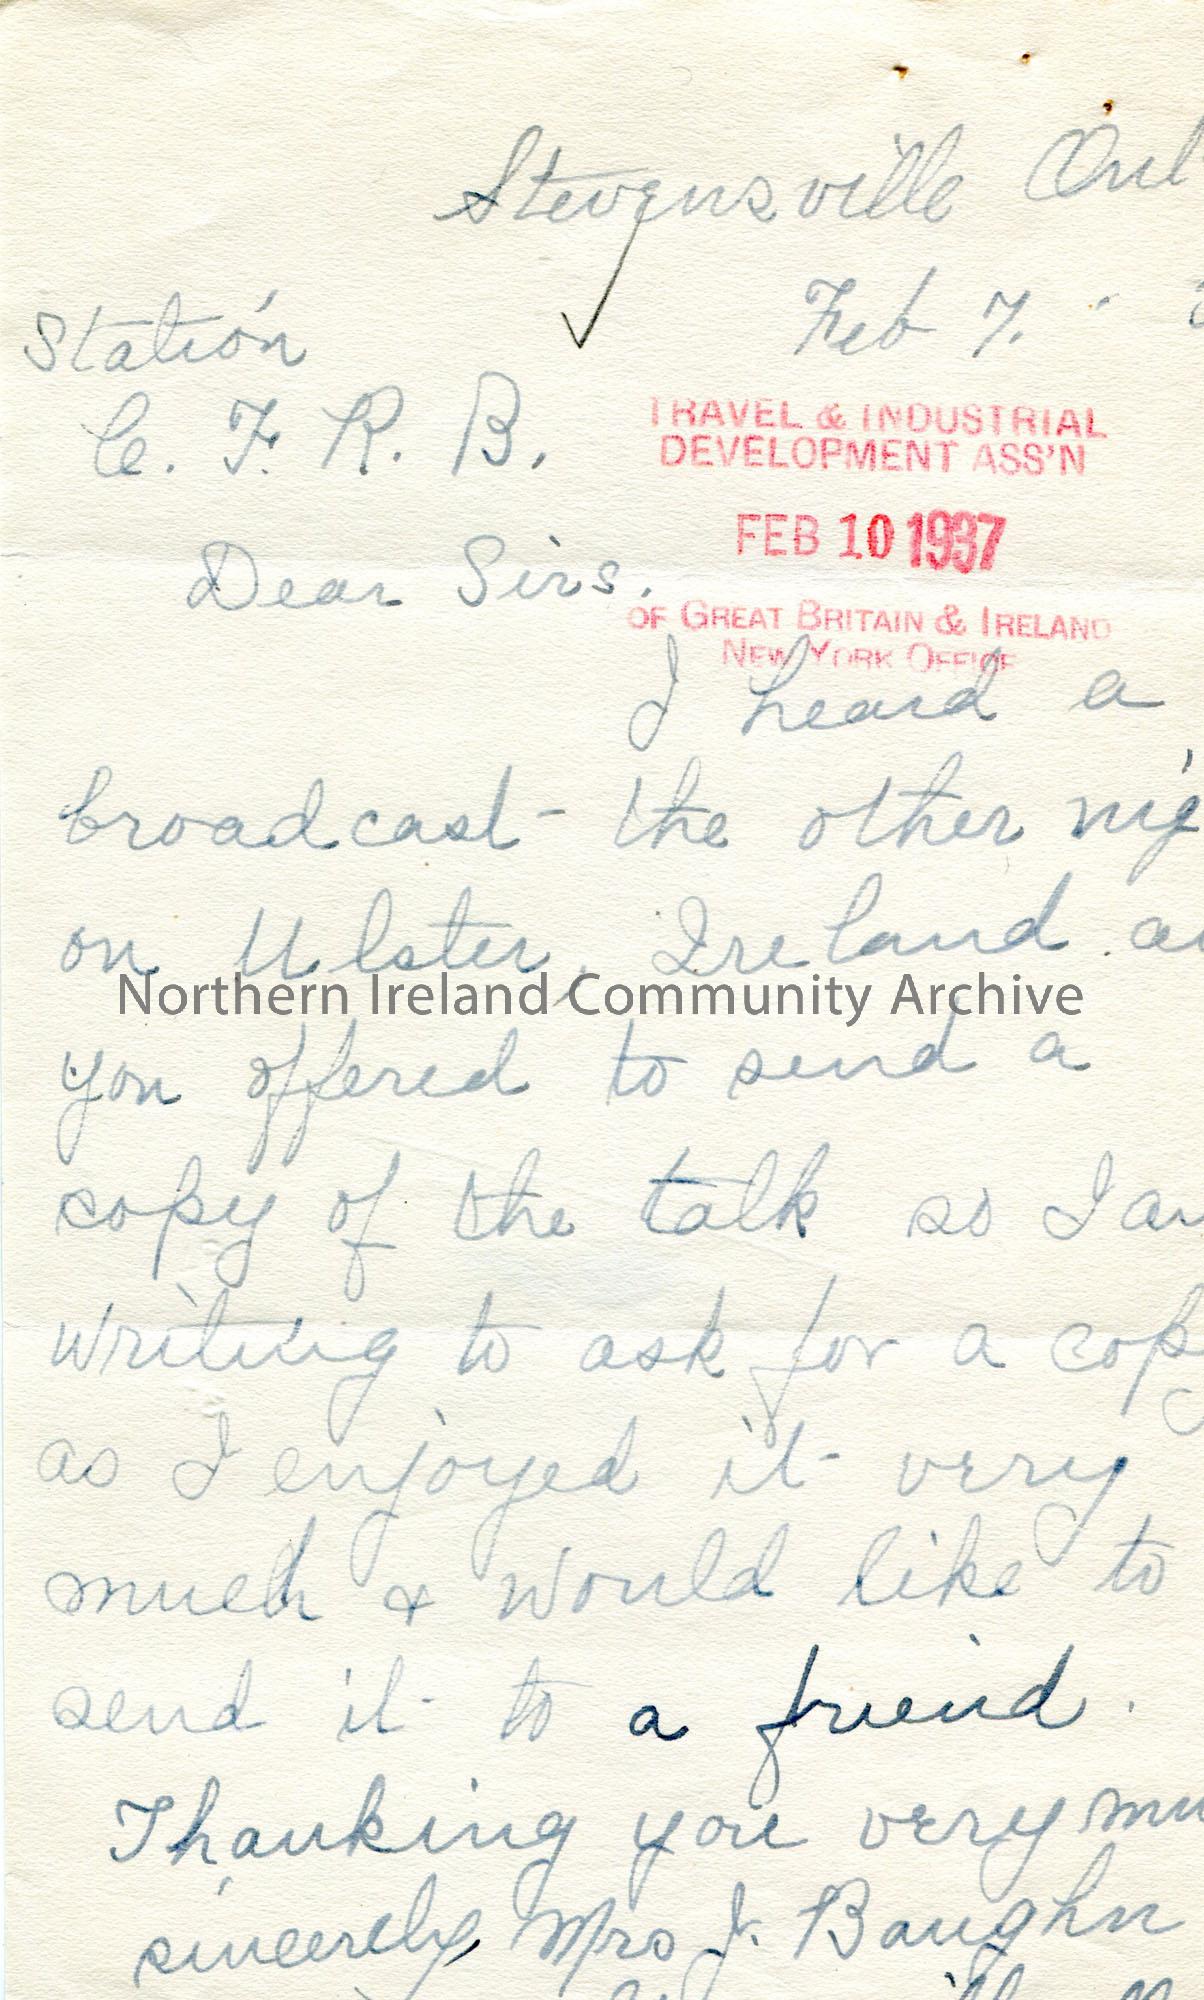 Stevensville Ont
Feb 7.
Station
C. F. R. B.
TRAVEL & INDUSTRIAL
DEVELOPMENT ASS'N
FEB 10 1937
OF GREAT BRITAIN & IRELAND
NEW YORK OFFICE
Dear Sirs.
I heard a
broadcast the other nig
on Ulster, Ireland a
Northern Ireland Community Archive
you offered to send a
copy of the talk so I am
writing to ask for a copy
as I enjoyed it very
much & would like to
send it to a friend.
Thanking you very mu
sincerely, Mrs J. Baughn